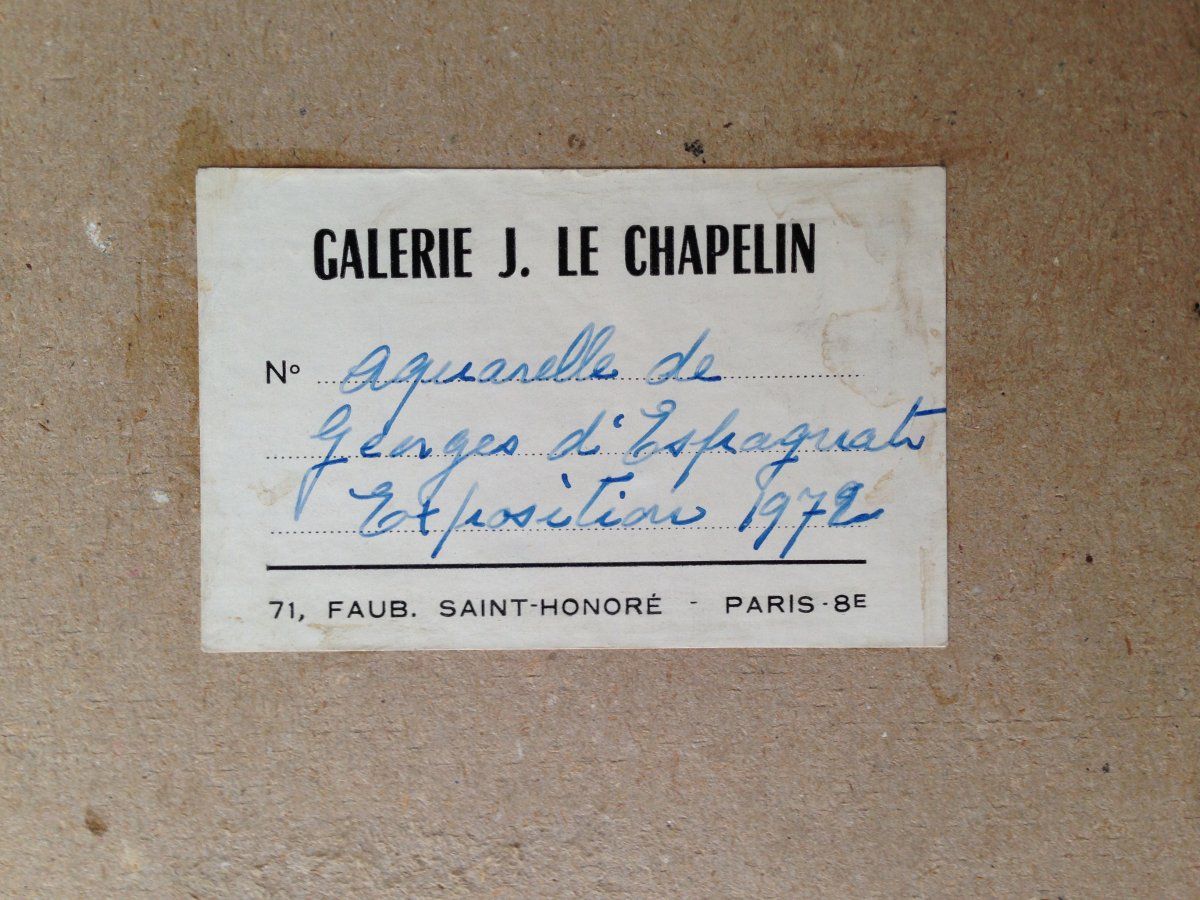 GALERIE J. LE CHAPELIN
N° Aquarelle de
Georges d'Espagnat
Exposition 1972
71, FAUB. SAINT-HONORÉ - PARIS - 8E